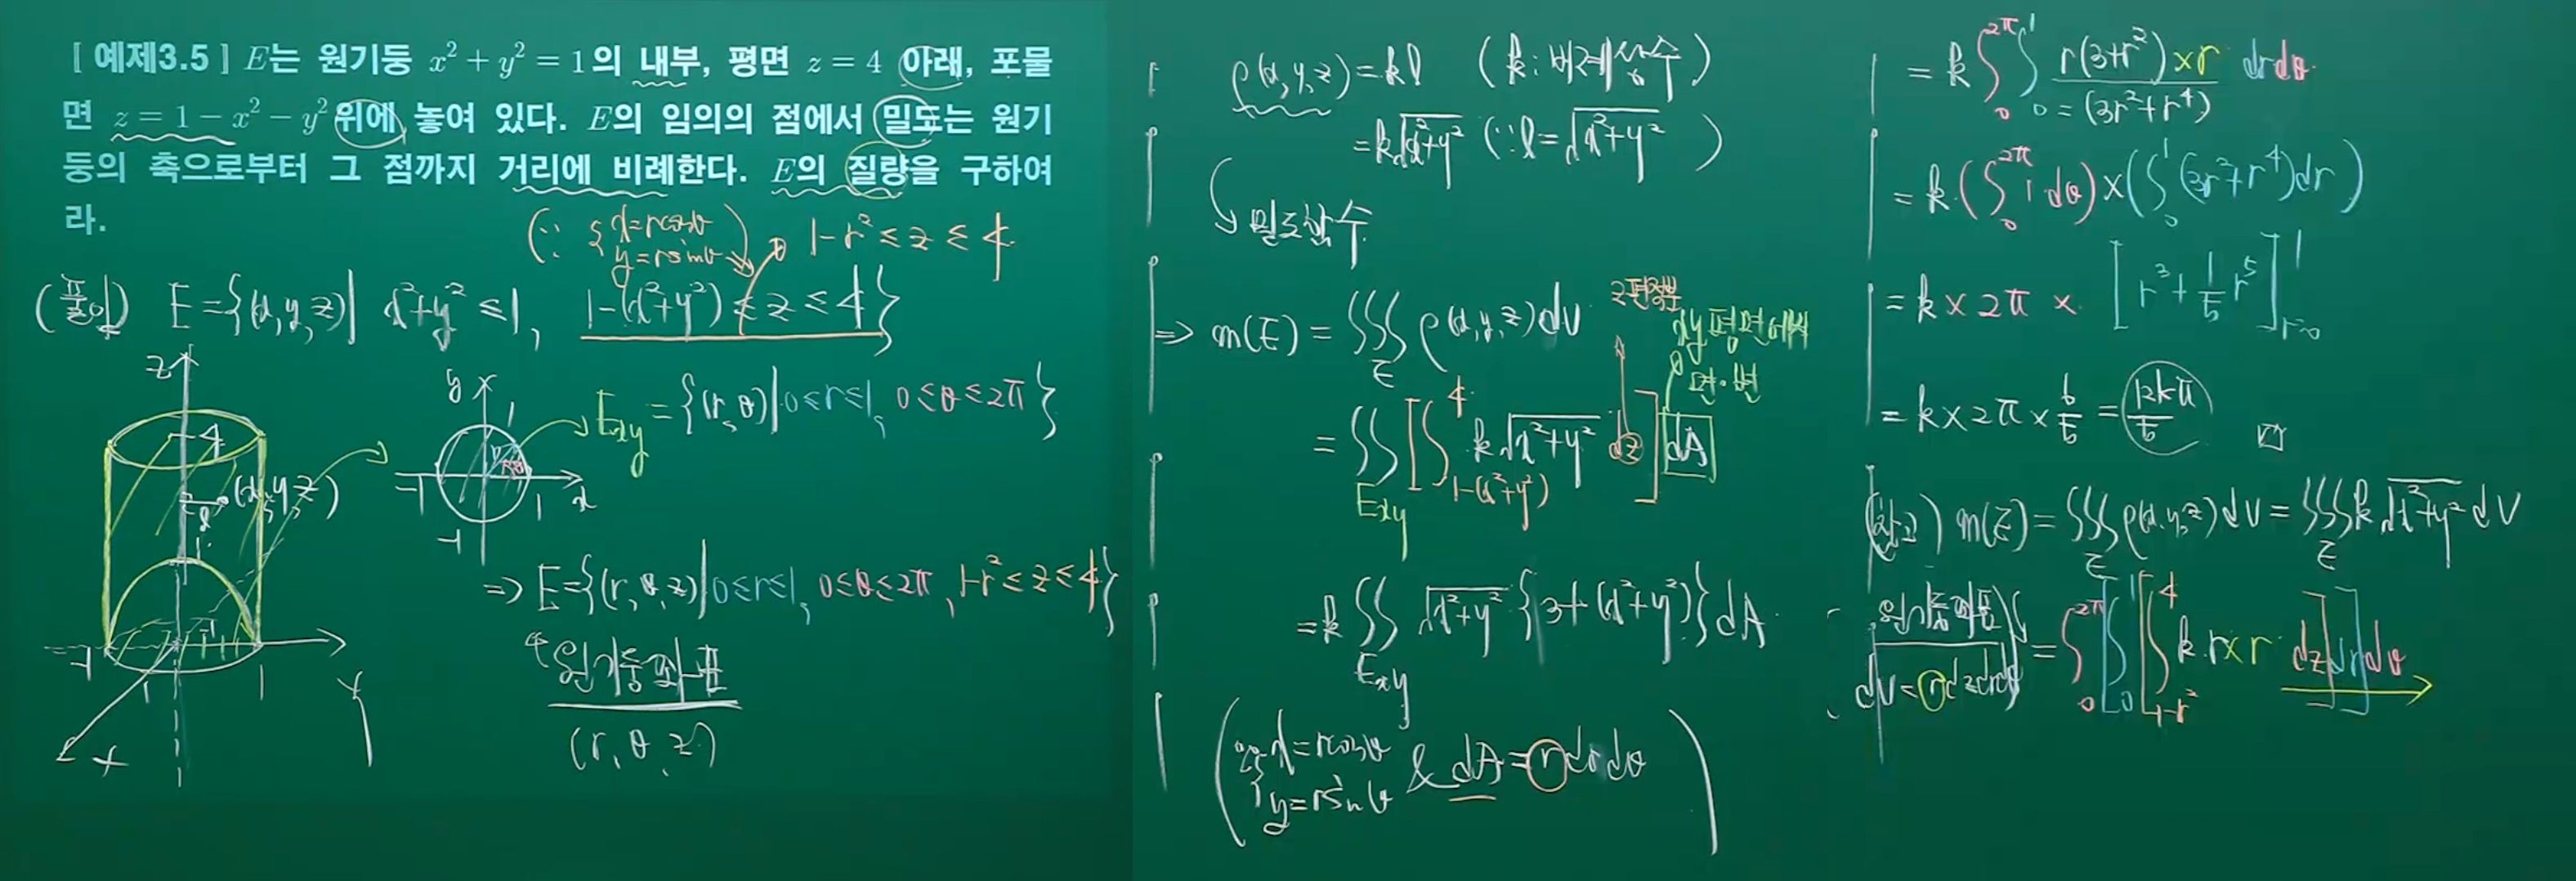 [ 예제3.5 ] E는 원기둥 x² + y² = 1의 내부, 평면 z = 4 아래, 포물
면 z = 1 − x² − y² 위에 놓여 있다. E의 임의의 점에서 밀도는 원기
둥의 축으로부터 그 점까지 거리에 비례한다. E의 질량을 구하여
라.
(∵ { x=rcosθ
y=rsinθ ) 1−r² ≤ z ≤ 4
(풀이) E = {(x,y,z) | x²+y² ≤ 1, 1−(x²+y²) ≤ z ≤ 4}
z
4
(x,y,z)
l
1
-1
1
1
y
x
y
1
-1
1
x
-1
Exy = {(r,θ) | 0≤r≤1, 0≤θ≤2π}
⇒ E={(r,θ,z) | 0≤r≤1, 0≤θ≤2π, 1−r² ≤ z ≤ 4}
“원기둥좌표
(r,θ,z)
ρ(x,y,z) = kl (k : 비례상수)
= k√(x²+y²) (∵ l = √(x²+y²))
밀도함수
⇒ m(E) = ∭_E ρ(x,y,z) dV
xy평면에서
= ∬_Exy [∫_{1−(x²+y²)}^4 k√(x²+y²) dz] dA
= k ∬_Exy √(x²+y²) {3+(x²+y²)} dA
( ∵ { x=rcosθ
y=rsinθ & dA = r dr dθ )
= k ∫_0^{2π} ∫_0^1 r(3+r²)×r dr dθ
= (3r²+r⁴)
= k·(∫_0^{2π} 1 dθ)×(∫_0^1 (3r²+r⁴)dr)
= k × 2π × [r³ + 1/5 r⁵]_{r=0}^1
= k × 2π × 6/5 = 12kπ/5 □
m(E) = ∭_E ρ(x,y,z) dV = ∭_E k√(x²+y²) dV
원기둥좌표
dV = r dz dr dθ
= ∫_0^{2π} [∫_0^1 [∫_{1−r²}^4 k·r×r dz] dr] dθ